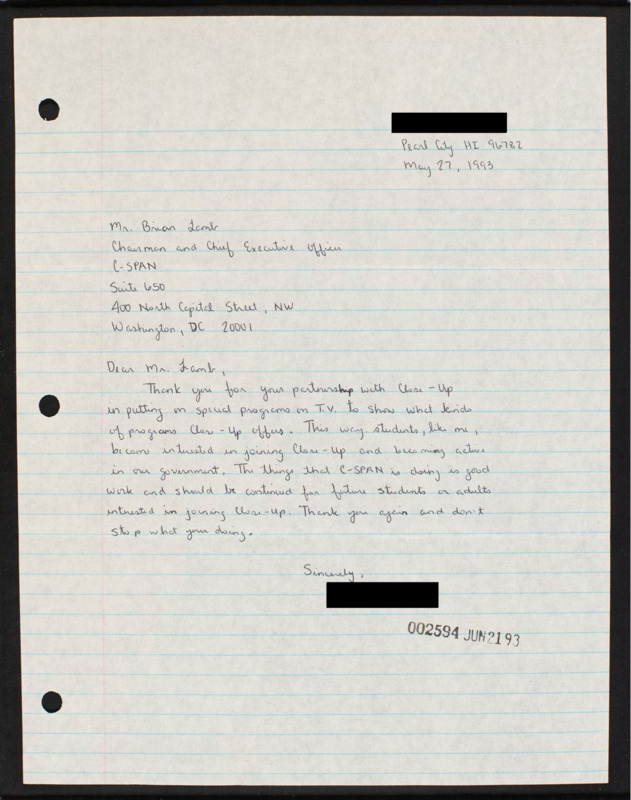 Pearl City HI 96782
May 27, 1993
Mr. Brian Lamb
Chairman and Chief Executive Officer
C-SPAN
Suite 650
400 North Capitol Street, NW
Washington, DC 20001
Dear Mr. Lamb,
Thank you for your partnership with Close-Up
in putting on special programs on T.V. to show what kinds
of programs Close-Up offers. This way students, like me,
become intrested in joining Close-Up and becoming active
in our government. The things that C-SPAN is doing is good
work and should be continued for future students or adults
intrested in joining Close-Up. Thank you again and don't
stop what your doing.
Sincerely,
002594 JUN 21 93